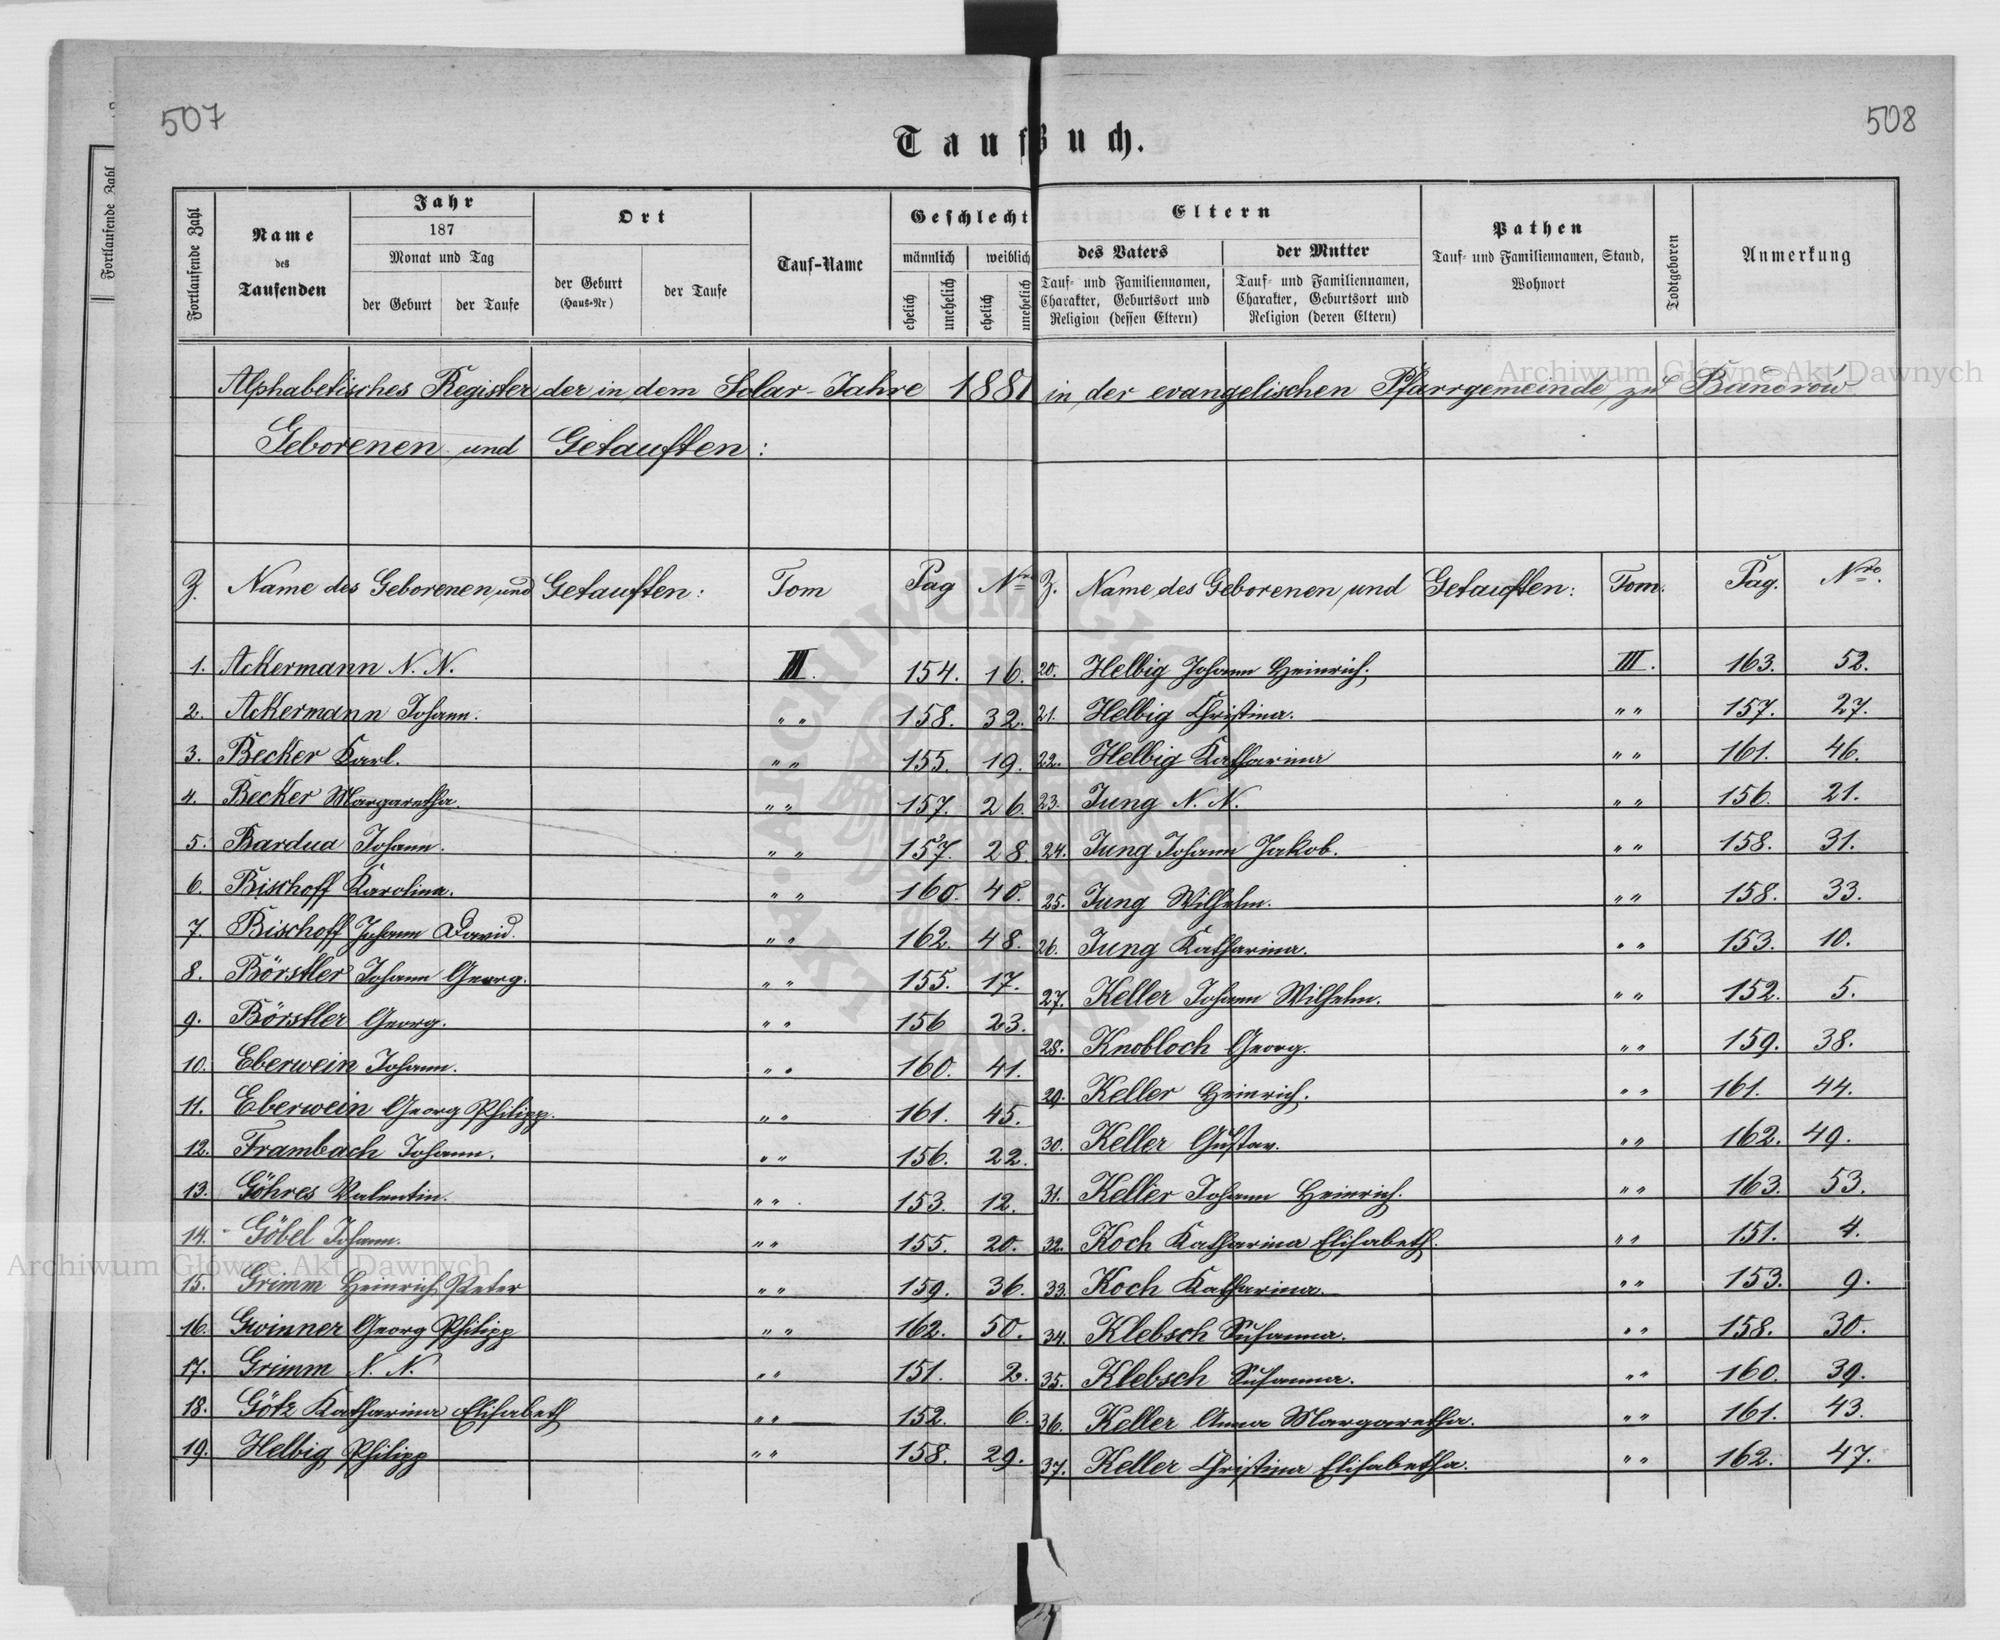 507
508
Taufbuch.
Fortlaufende Zahl
Fortlaufende Zahl
Name
des
Taufenden
Jahr
187
Monat und Tag
der Geburt
der Taufe
Ort
der Geburt
(Haus-Nr)
der Taufe
Tauf-Name
Geschlecht
männlich
weiblich
ehelich
unehelich
ehelich
unehelich
Eltern
des Vaters
Tauf- und Familiennamen,
Charakter, Geburtsort und
Religion (dessen Eltern)
der Mutter
Tauf- und Familiennamen,
Charakter, Geburtsort und
Religion (deren Eltern)
Pathen
Tauf- und Familiennamen, Stand,
Wohnort
Todtgeboren
Anmerkung
Alphabetisches Register der in dem Solar-Jahre 1881 in der evangelischen Pfarrgemeinde zu Bandrow
Geborenen und Getauften:
Z. Name des Geborenen und Getauften: Tom Pag Nro
1. Ackermann N. N. III. 154. 16.
2. Ackermann Johann. " " 158. 32.
3. Becker Karl. " " 155. 19.
4. Becker Margaretha. " " 157. 26.
5. Bardua Johann. " " 157. 28.
6. Bischoff Karolina. " " 160. 40.
7. Bischoff Johann David. " " 162. 48.
8. Börstler Johann Georg. " " 155. 17.
9. Börstler Georg. " " 156 23.
10. Eberwein Johann. " " 160. 41.
11. Eberwein Georg Philipp. " " 161. 45.
12. Frambach Johann. " " 156. 22.
13. Göhres Valentin. " " 153. 12.
14. Göbel Johann. " " 155. 20.
15. Grimm Heinrich Peter " " 159. 36.
16. Gwinner Georg Philipp " " 162. 50.
17. Grimm N. N. " " 151. 2.
18. Götz Katharina Elisabeth " " 152. 6.
19. Helbig Philipp " " 158. 29.
Z. Name des Geborenen und Getauften: Tom. Pag. Nro.
20. Helbig Johann Heinrich. III. 163. 52.
21. Helbig Christina. " " 157. 27.
22. Helbig Katharina " " 161. 46.
23. Jung N. N. " " 156. 21.
24. Jung Johann Jakob. " " 158. 31.
25. Jung Wilhelm. " " 158. 33.
26. Jung Katharina. " " 153. 10.
27. Keller Johann Wilhelm. " " 152. 5.
28. Knobloch Georg. " " 159. 38.
29. Keller Heinrich. " " 161. 44.
30. Keller Gustav. " " 162. 49.
31. Keller Johann Heinrich. " " 163. 53.
32. Koch Katharina Elisabeth. " " 151. 4.
33. Koch Katharina. " " 153. 9.
34. Klebsch Susanna. " " 158. 30.
35. Klebsch Susanna. " " 160. 39.
36. Keller Anna Margaretha. " " 161. 43.
37. Keller Christina Elisabetha. " " 162. 47.
Archiwum Główne Akt Dawnych
Archiwum Główne Akt Dawnych